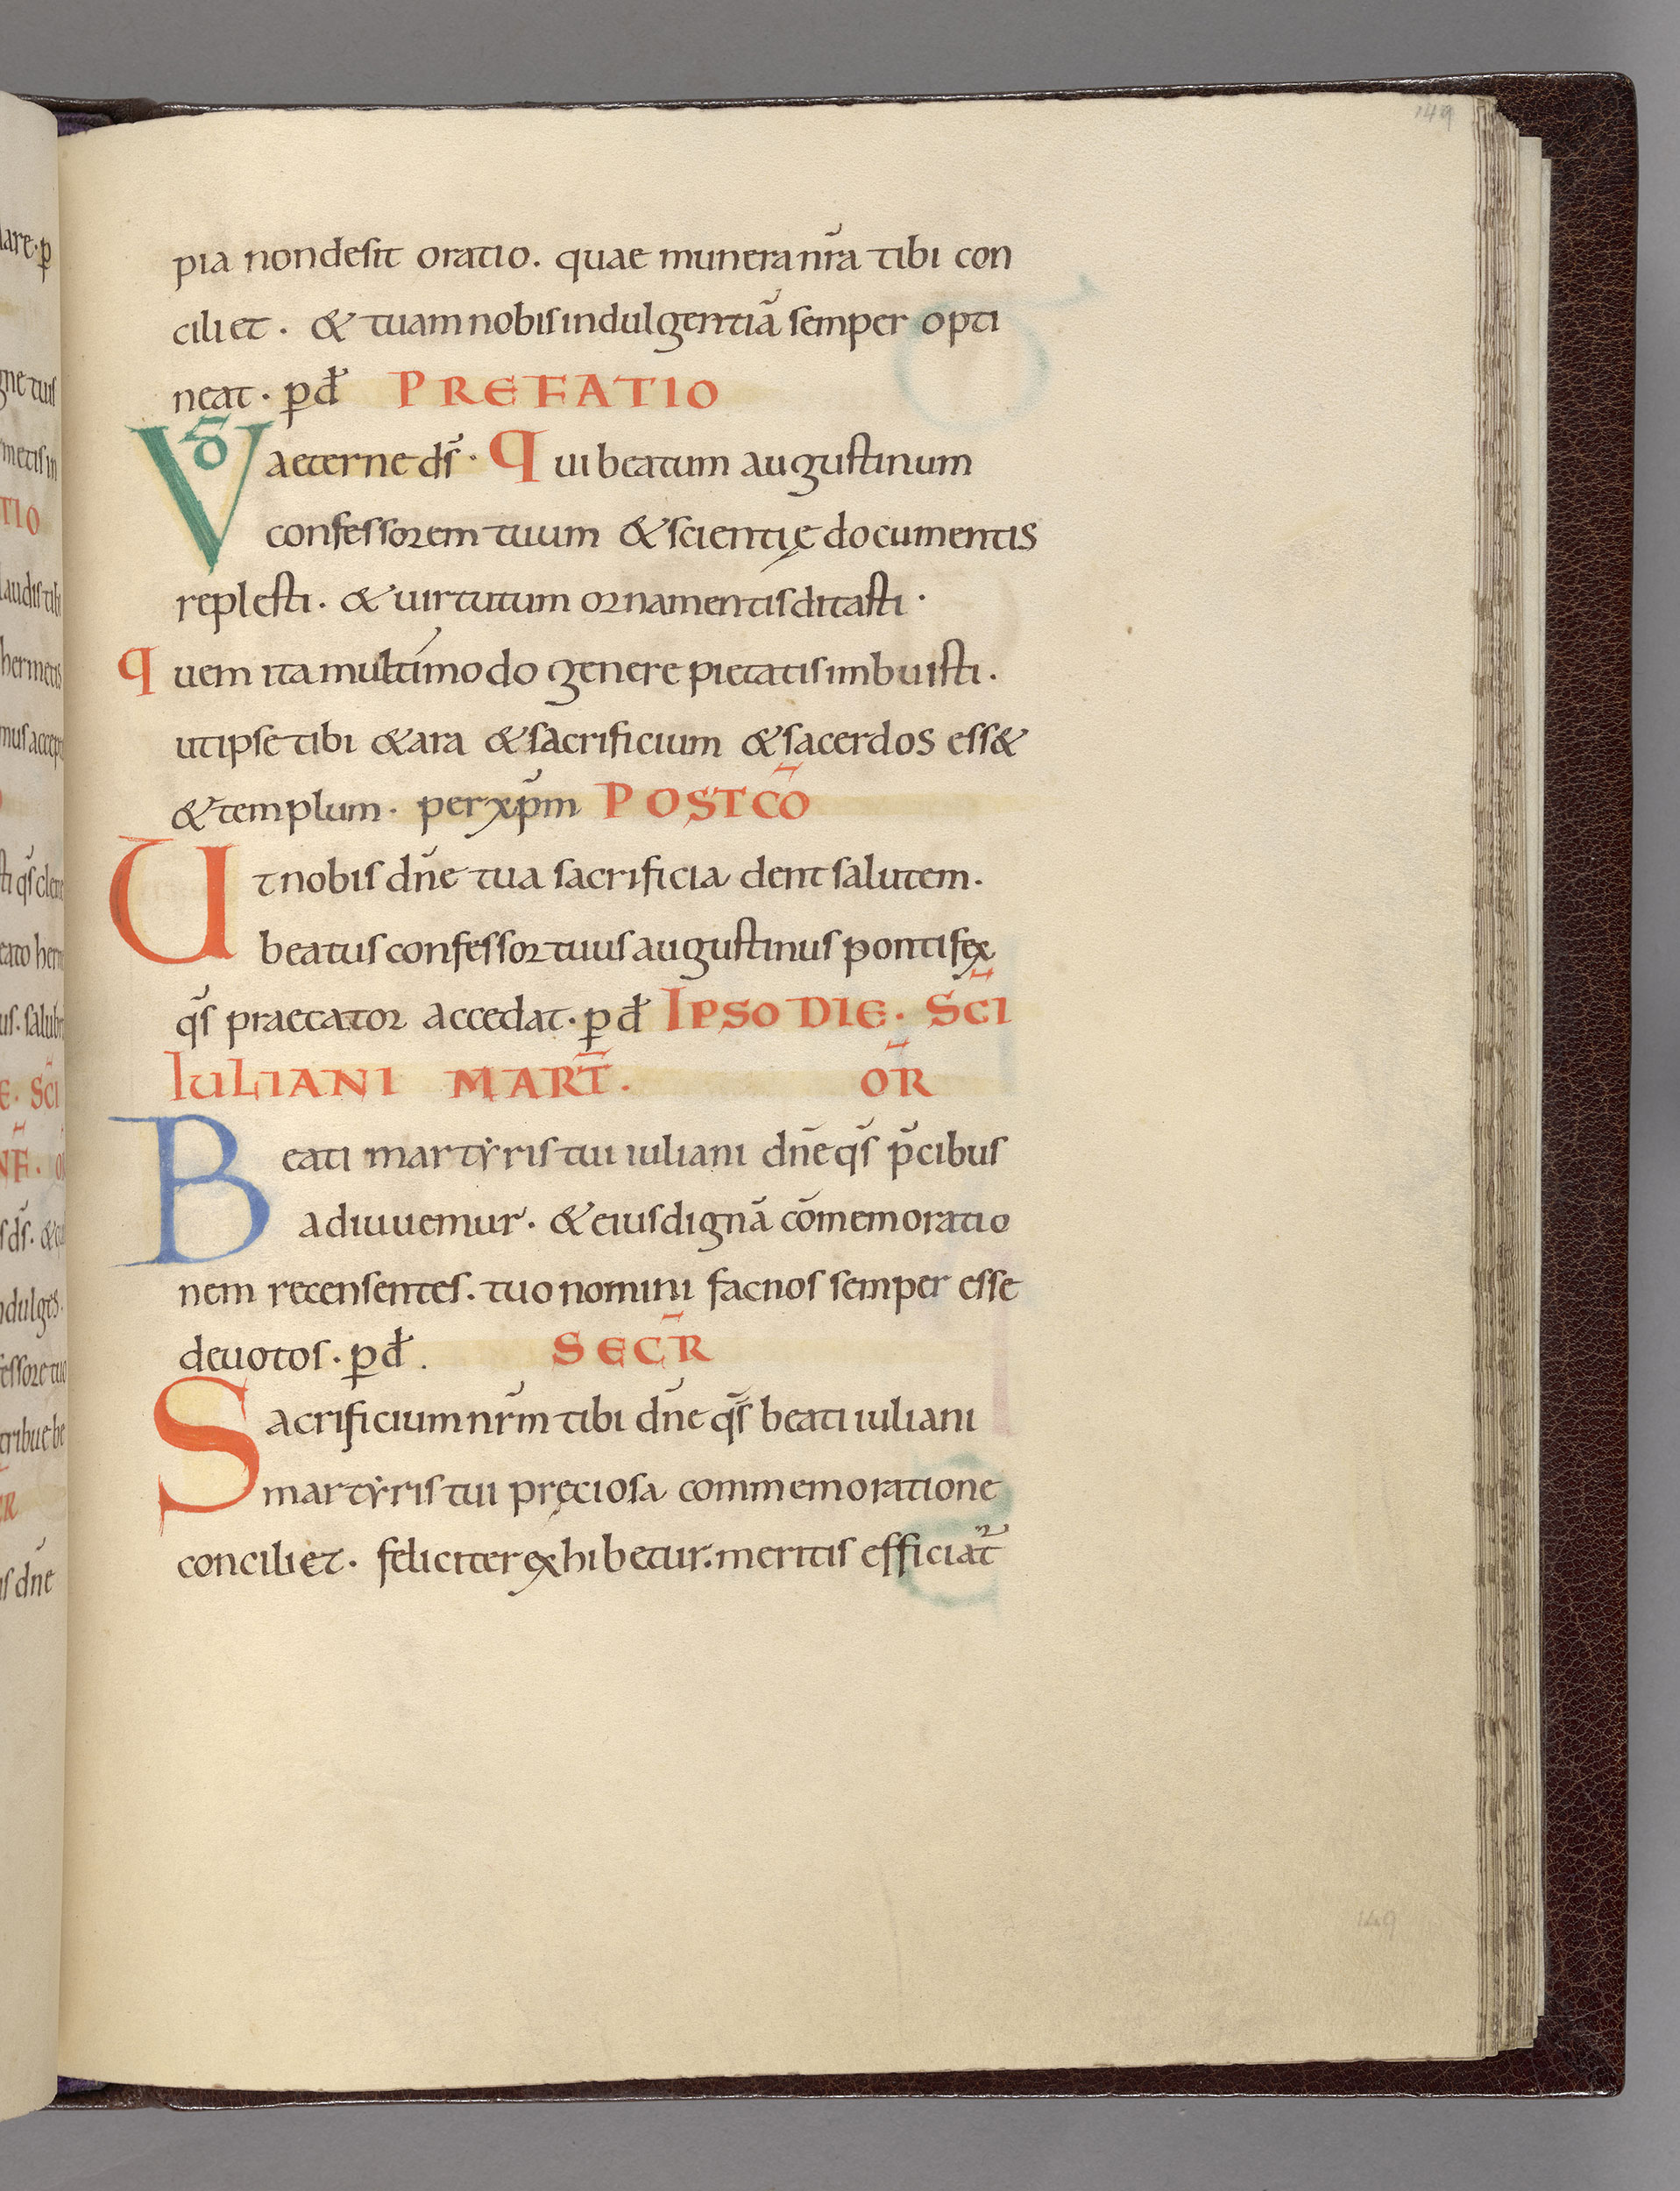 149
pia nondesit oratio. quae munera nr̃a tibi con
ciliet. & tuam nobis indulgentiã semper opti
neat. p̱ đ PREFATIO
VD̄ aeterne ds̃. Qui beatum augustinum
confessorem tuum & scientię documentis
replesti. & uirtutum ornamentis ditasti.
quem ita multimodo genere pietatis imbuisti.
ut ipse tibi & ara & sacrificium & sacerdos ess&
& templum. per xp̃m POSTCÕ
Ut nobis dñe tua sacrificia dent salutem.
beatus confessor tuus augustinus pontifex
qs̃ praecator accedat. p̱ đ IPSO DIE. SC̃I
IULIANI MART̃. OR̃
Beati martẏris tui iuliani dñe qs̃ p̃cibus
adiuuemur. & eius dignã cõmemoratio
nem recensentes. tuo nomini fac nos semper esse
deuotos. p̱ đ. SECR̃
Sacrificium nr̃m tibi dñe qs̃ beati iuliani
martẏris tui pręciosa commemoratione
conciliet. feliciter exhibetur. meritis efficiat᷑
149